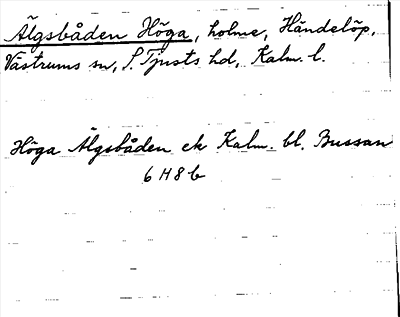 Älgsbåden Höga, holme, Händelöp,
Västrums sn, S. Tjusts hd, Kalm. l.
Höga Älgsbåden ek Kalm. bl. Bussan
6 H 8 b